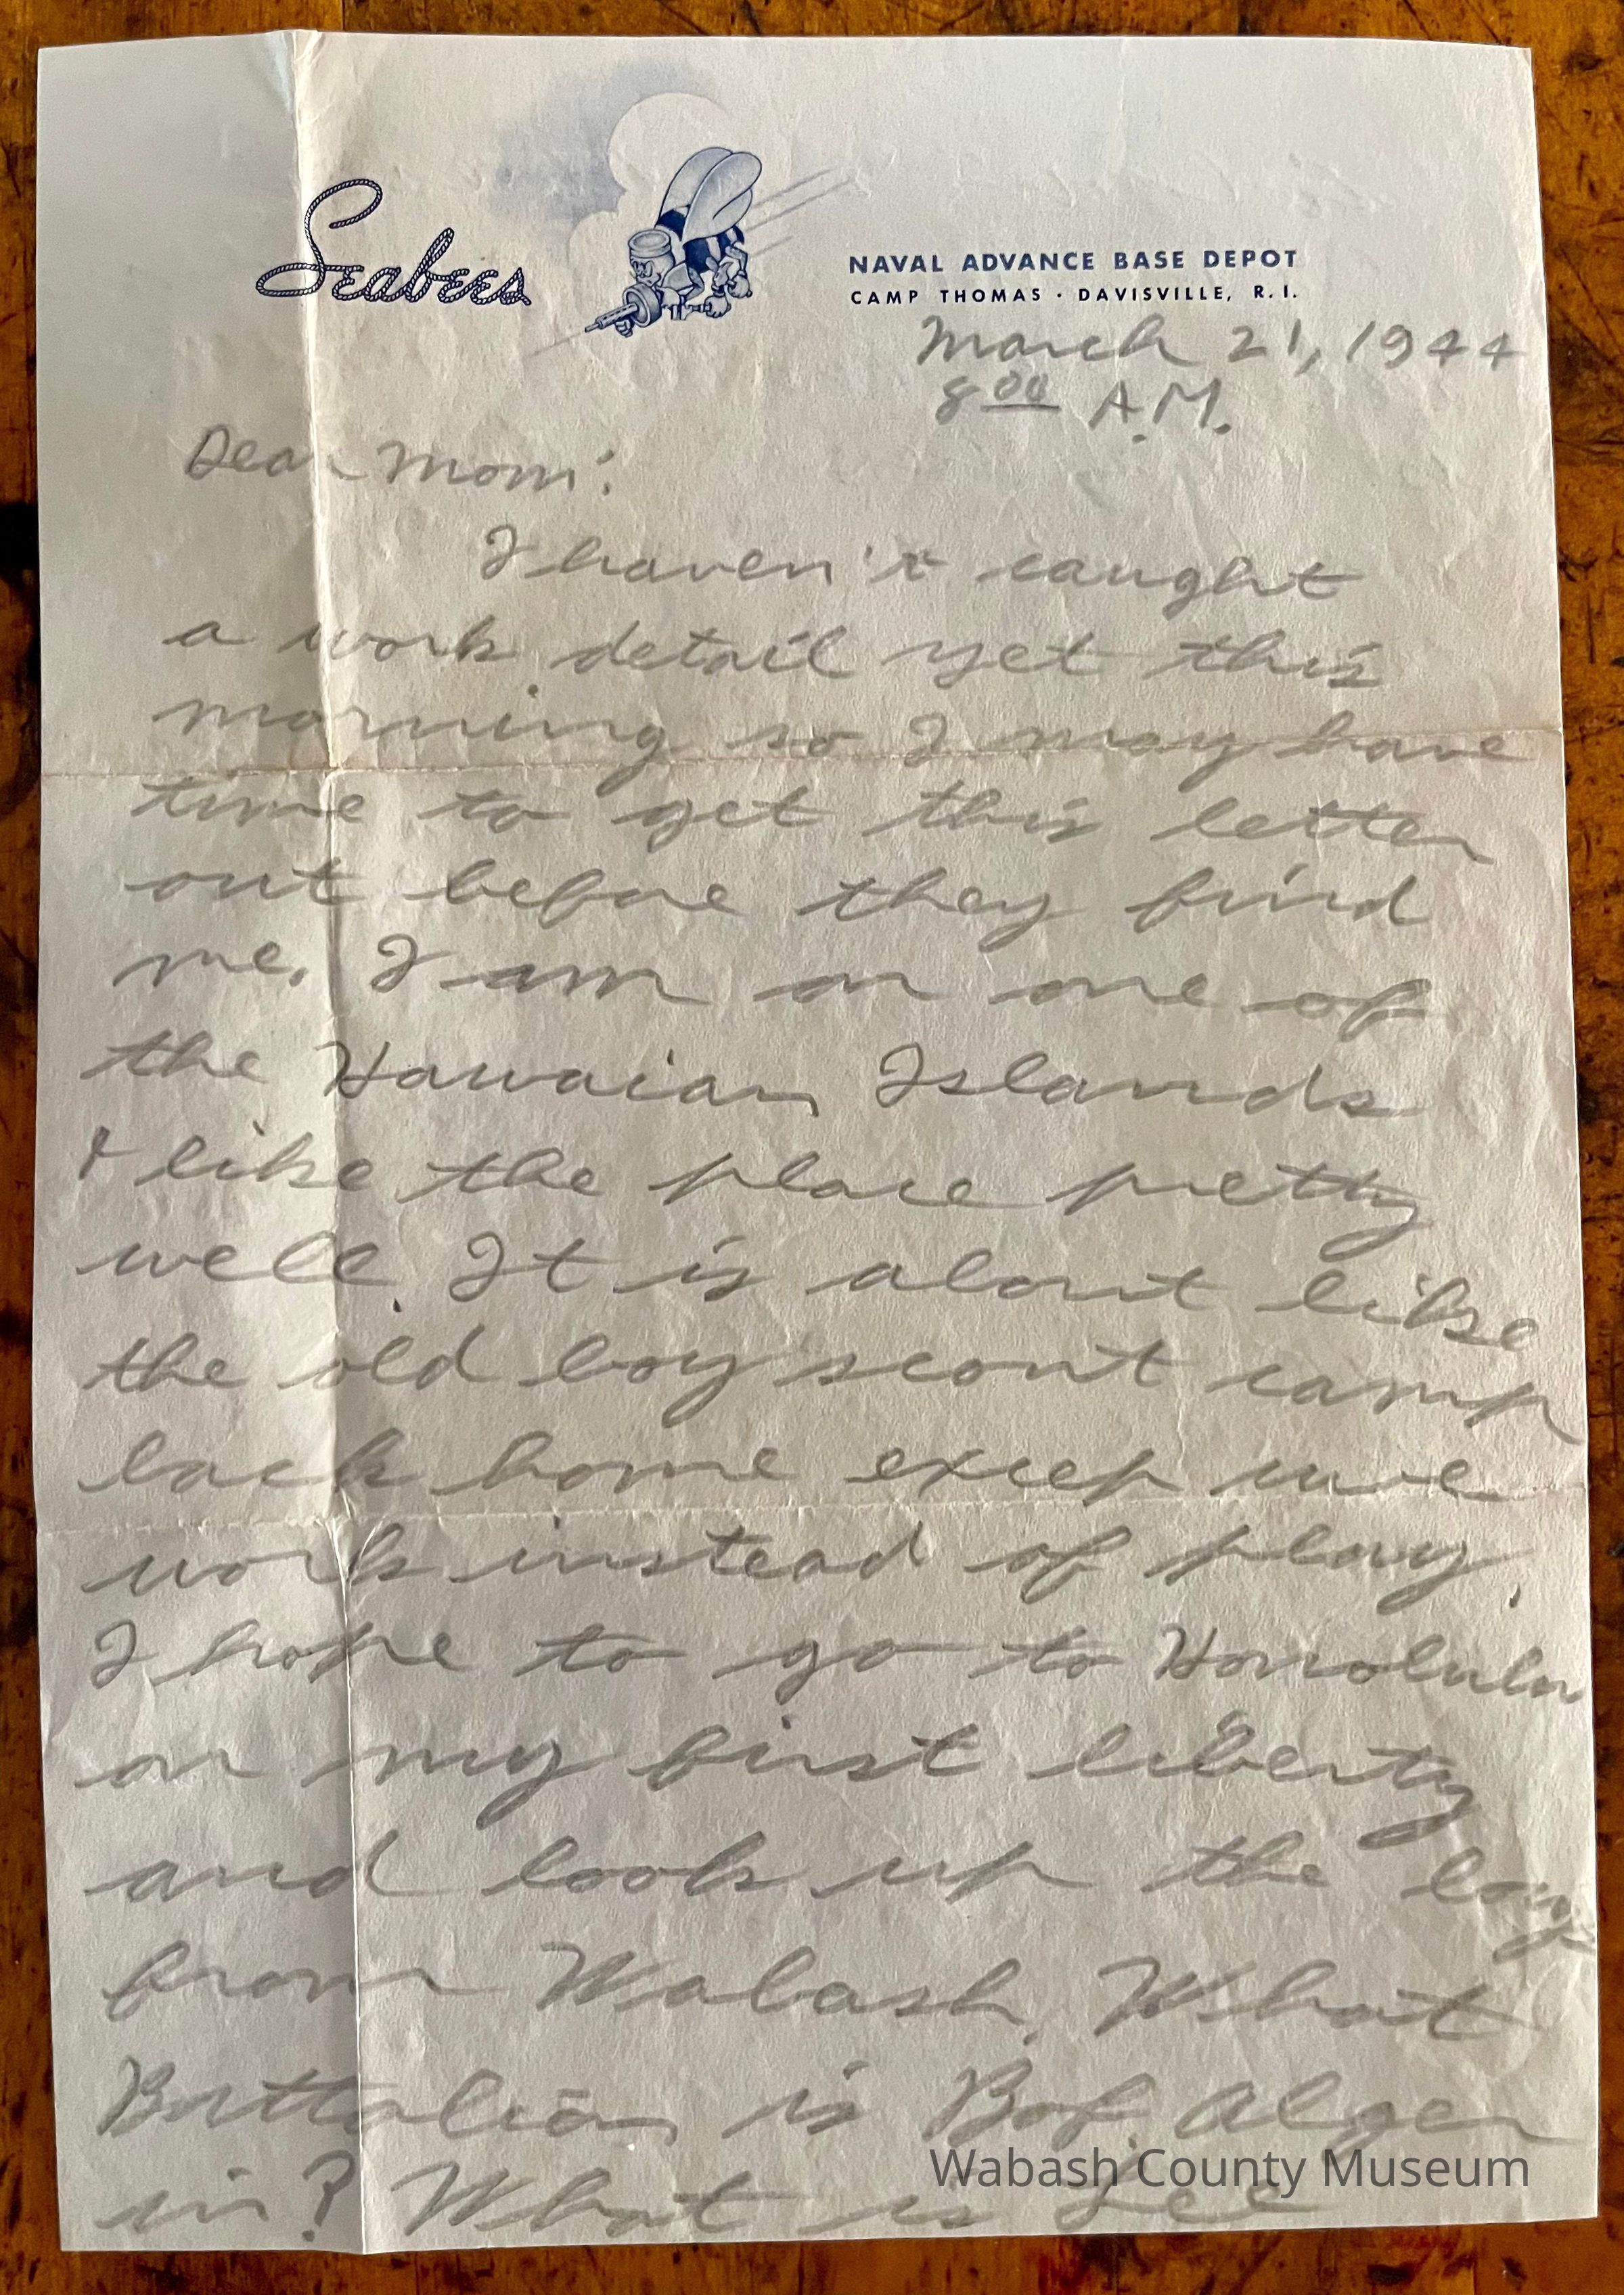 Seabees
NAVAL ADVANCE BASE DEPOT
CAMP THOMAS · DAVISVILLE, R.I.
March 21, 1944
8 00 A.M.
Dear Mom:
I haven't caught
a work detail yet this
morning so I may have
time to get this letter
out before they find
me. I am on one of
the Hawaian Islands
& like the place pretty
well. It is about like
the old boy scout camp
back home excep we
work instead of play.
I hope to go to Honolulu
on my first liberty
and look up the boys
from Wabash. What
Battalion is Bob Alger
in? What is Lee
Wabash County Museum